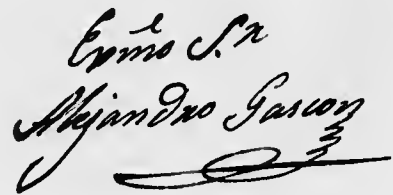 Exmo S.n
Alejandro Gascon